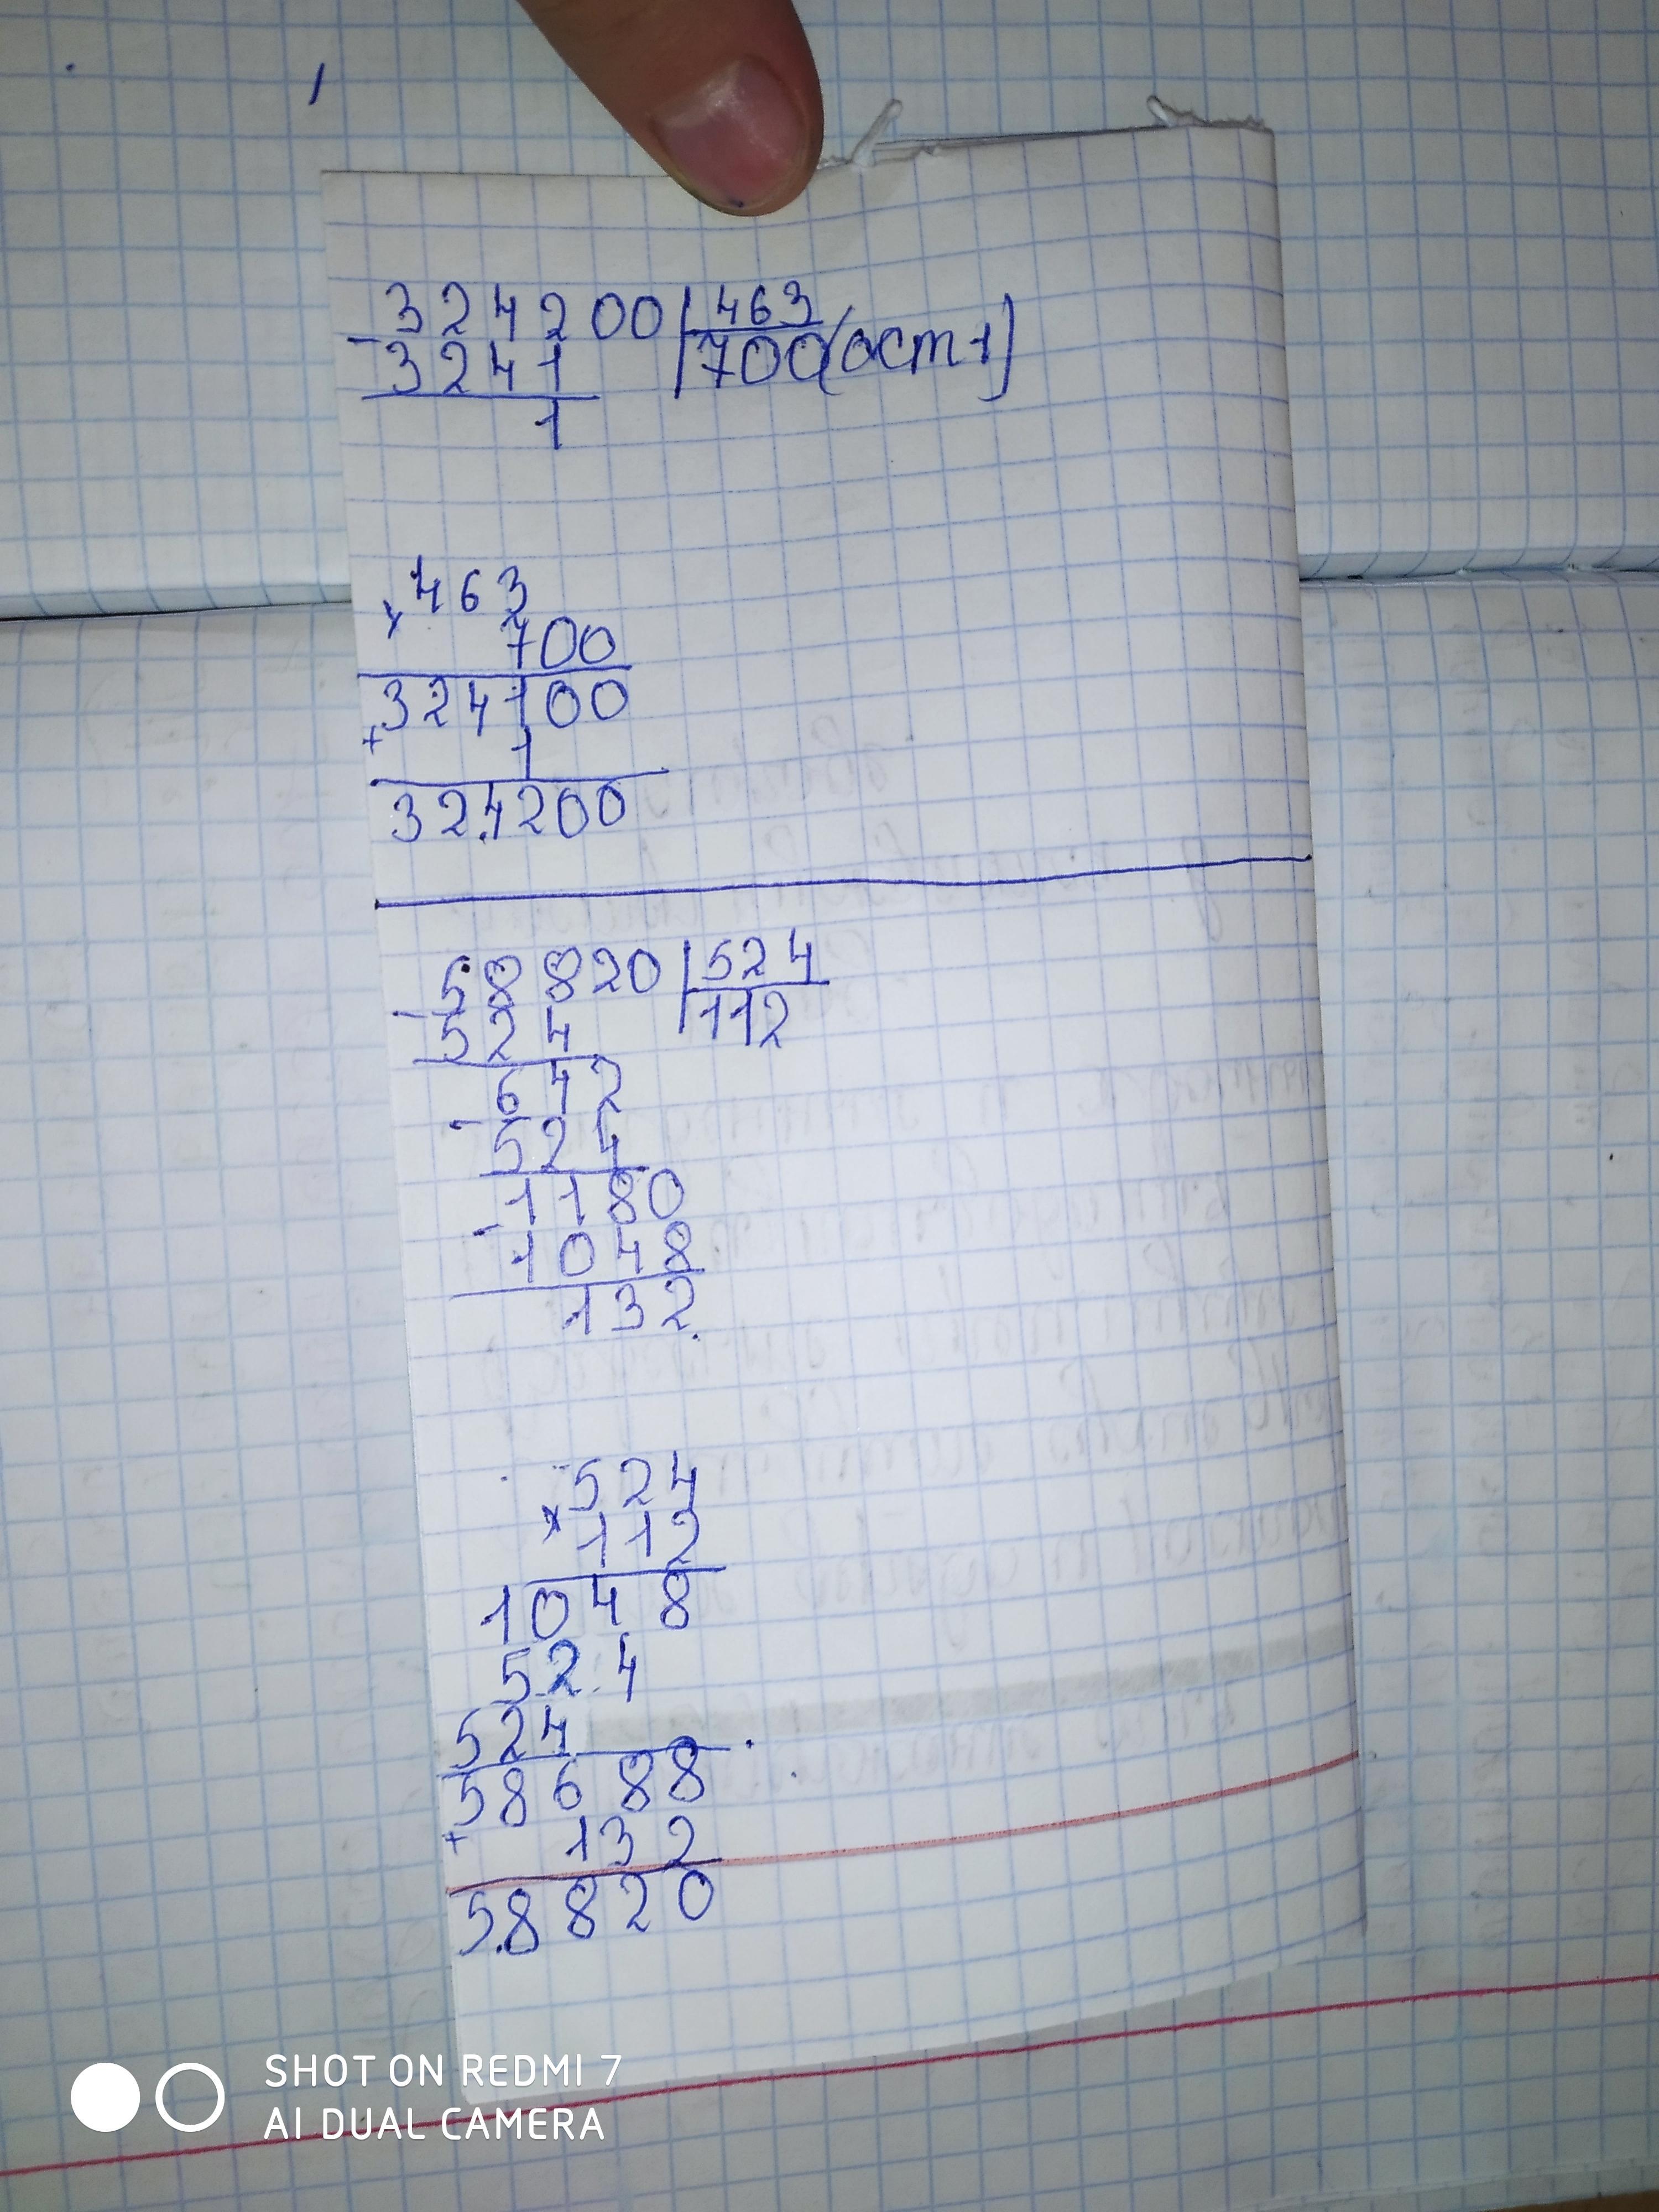 - 324200 | 463
3241 | 700 (ост 1)
1
× 463
700
324100
+ 1
324200
- 58820 | 524
524 | 112
- 642
524
- 1180
1048
132
× 524
112
1048
524
524
58688
+ 132
58820
SHOT ON REDMI 7
AI DUAL CAMERA